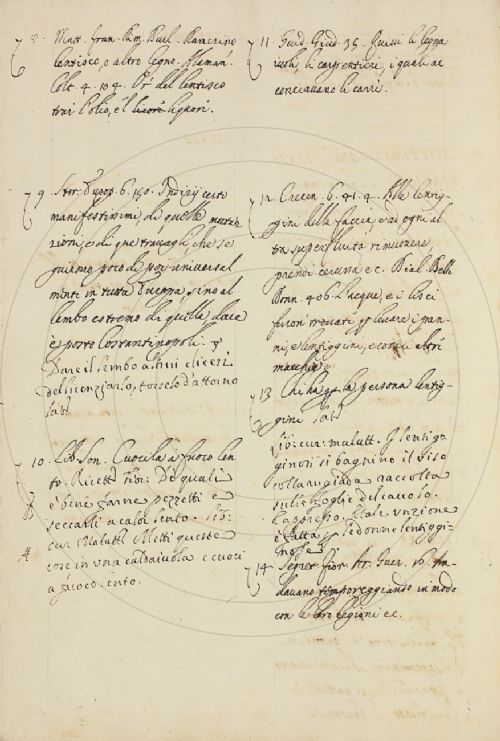 8. Matt. Fran. Rim. Burl. Ramerino
lentisco, o altro legno. Alaman.
Colt. 4. 104. Del lentisco
trai l'olio, e'l licor liquori.
9. Stor. Europ. 6. 150. Indizij certi
manifestissimi, di quelle
e di que' travagli, che se
guirono poco di poi universal
mente in tutta Europa, sino al
lembo estremo di quella, dove
è posto Costantinopoli.
Dare il lembo a
del licenziarlo, d'attorno
10. Lib. Son. Cuocila a fuoco len
to. Ricett. Fior. De quali
è bene farne pezzetti e
seccarli a calor lento. Lib:
cur. Malatt. Metti queste
cose in una caldaiuola e cuoci
a fuoco lento.
11. Guid. Giud. 35. Quivi li legna
iuoli, li carpentieri, i quali ac
conciavano li carri.
12. Crescen. 6. 41. 4. Alle lentig
gini della faccia, e ad ogni al
tra superfluità rimuovere,
prendi cerussa ec. Bell.
Donn. 406. L'acque, e i lisci
furon trovati per levare i pan
ni, e lentiggini, e cotali altri
macchie
13 la persona lentig-
gini
Lib: cur: malatt. I lentig
ginosi si bagnino il viso
colla rugiada raccolta
sulle foglie del cavolo.
E appresso. Tale unzione
è fatta per le donne lentiggi-
nose.
14. Segret. Fior. Ar. Guer. An-
davano temporeggiando in modo
con le loro legioni ec.